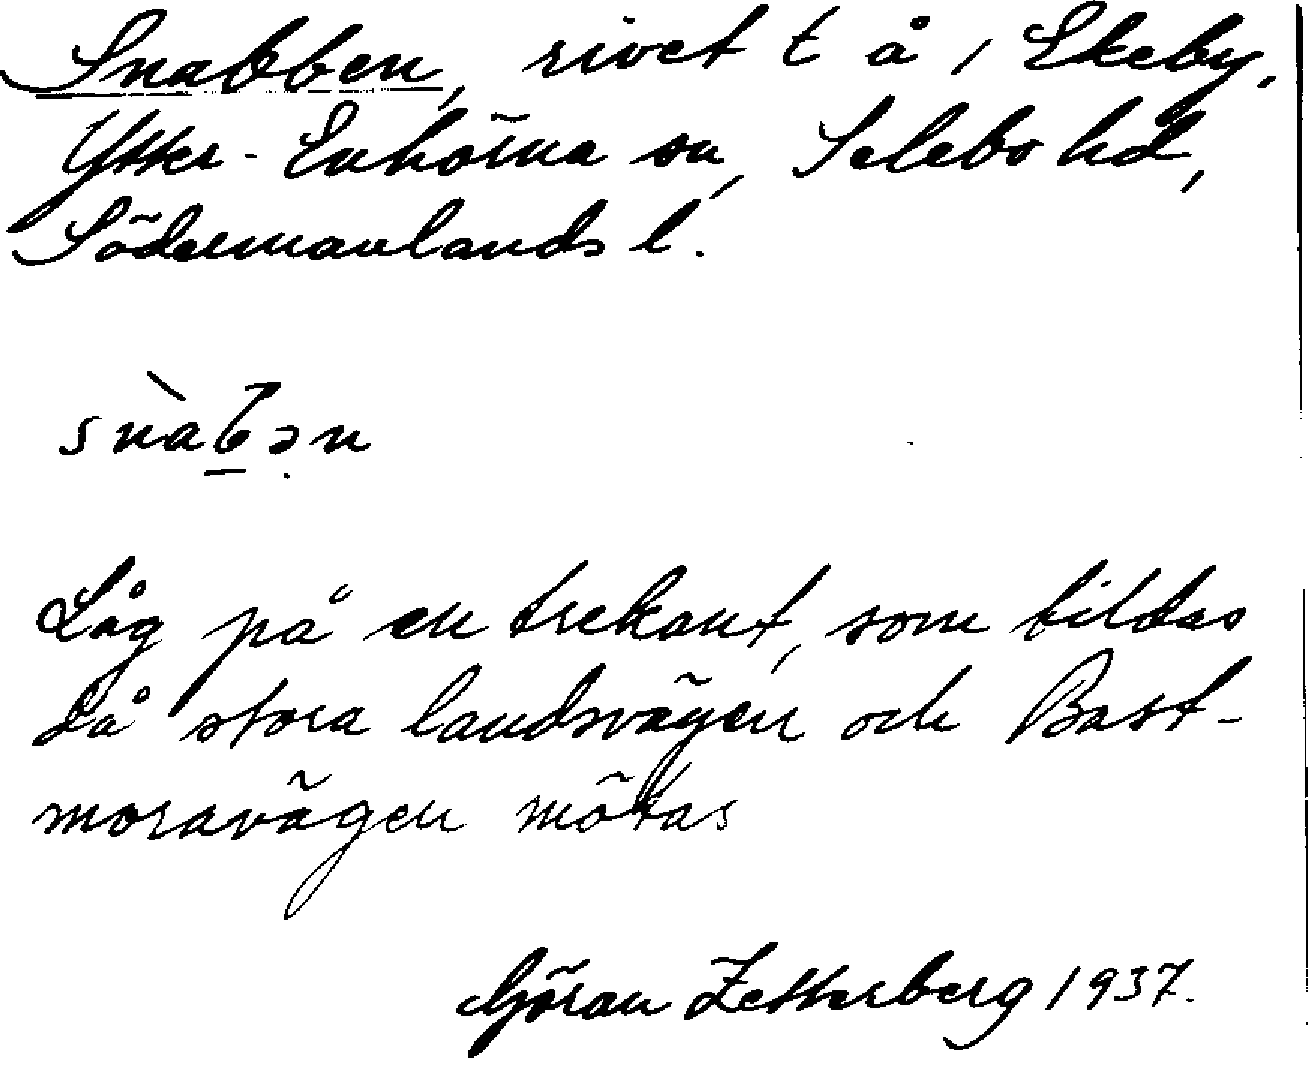 Snabben, rivet t å, Ekeby,
Ytter-Enhörna sn, Selebo hd,
Södermanlands l.
Låg på en trekant, som bildas
då stora landsvägen och Bast-
moravägen mötas
Göran Zetterberg 1937.